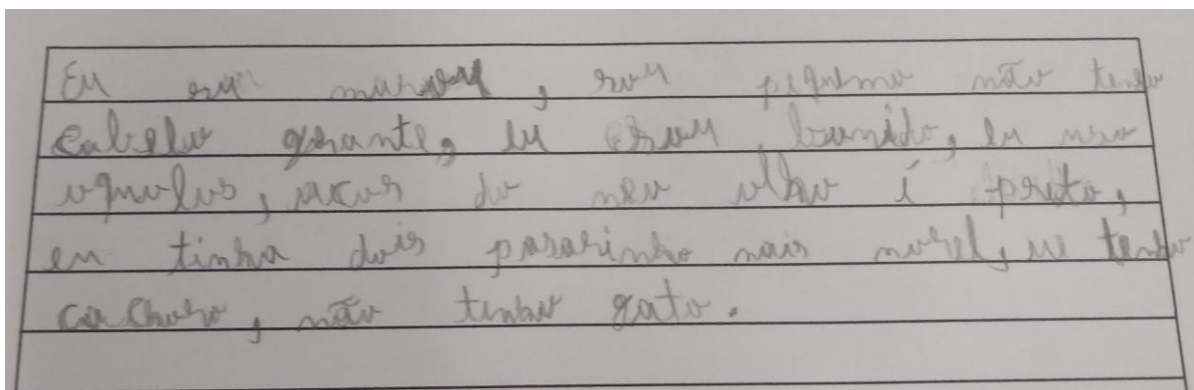 Eu sou , sou piqueno não tenho
cabelo grante, eu sou bunido, eu uso
oqulos, acor do meu olho é preto,
eu tinha dois pasarinho mais morel, eu tenho
cachoro, não tenho gato.